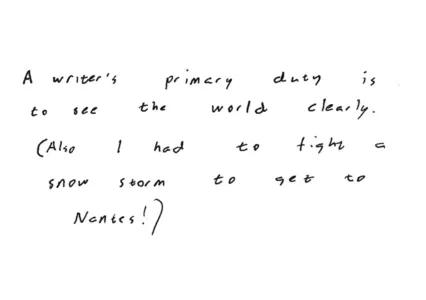 A writer's primary duty is
to see the world clearly.
(Also I had to fight a
snow storm to get to
Nantes!)